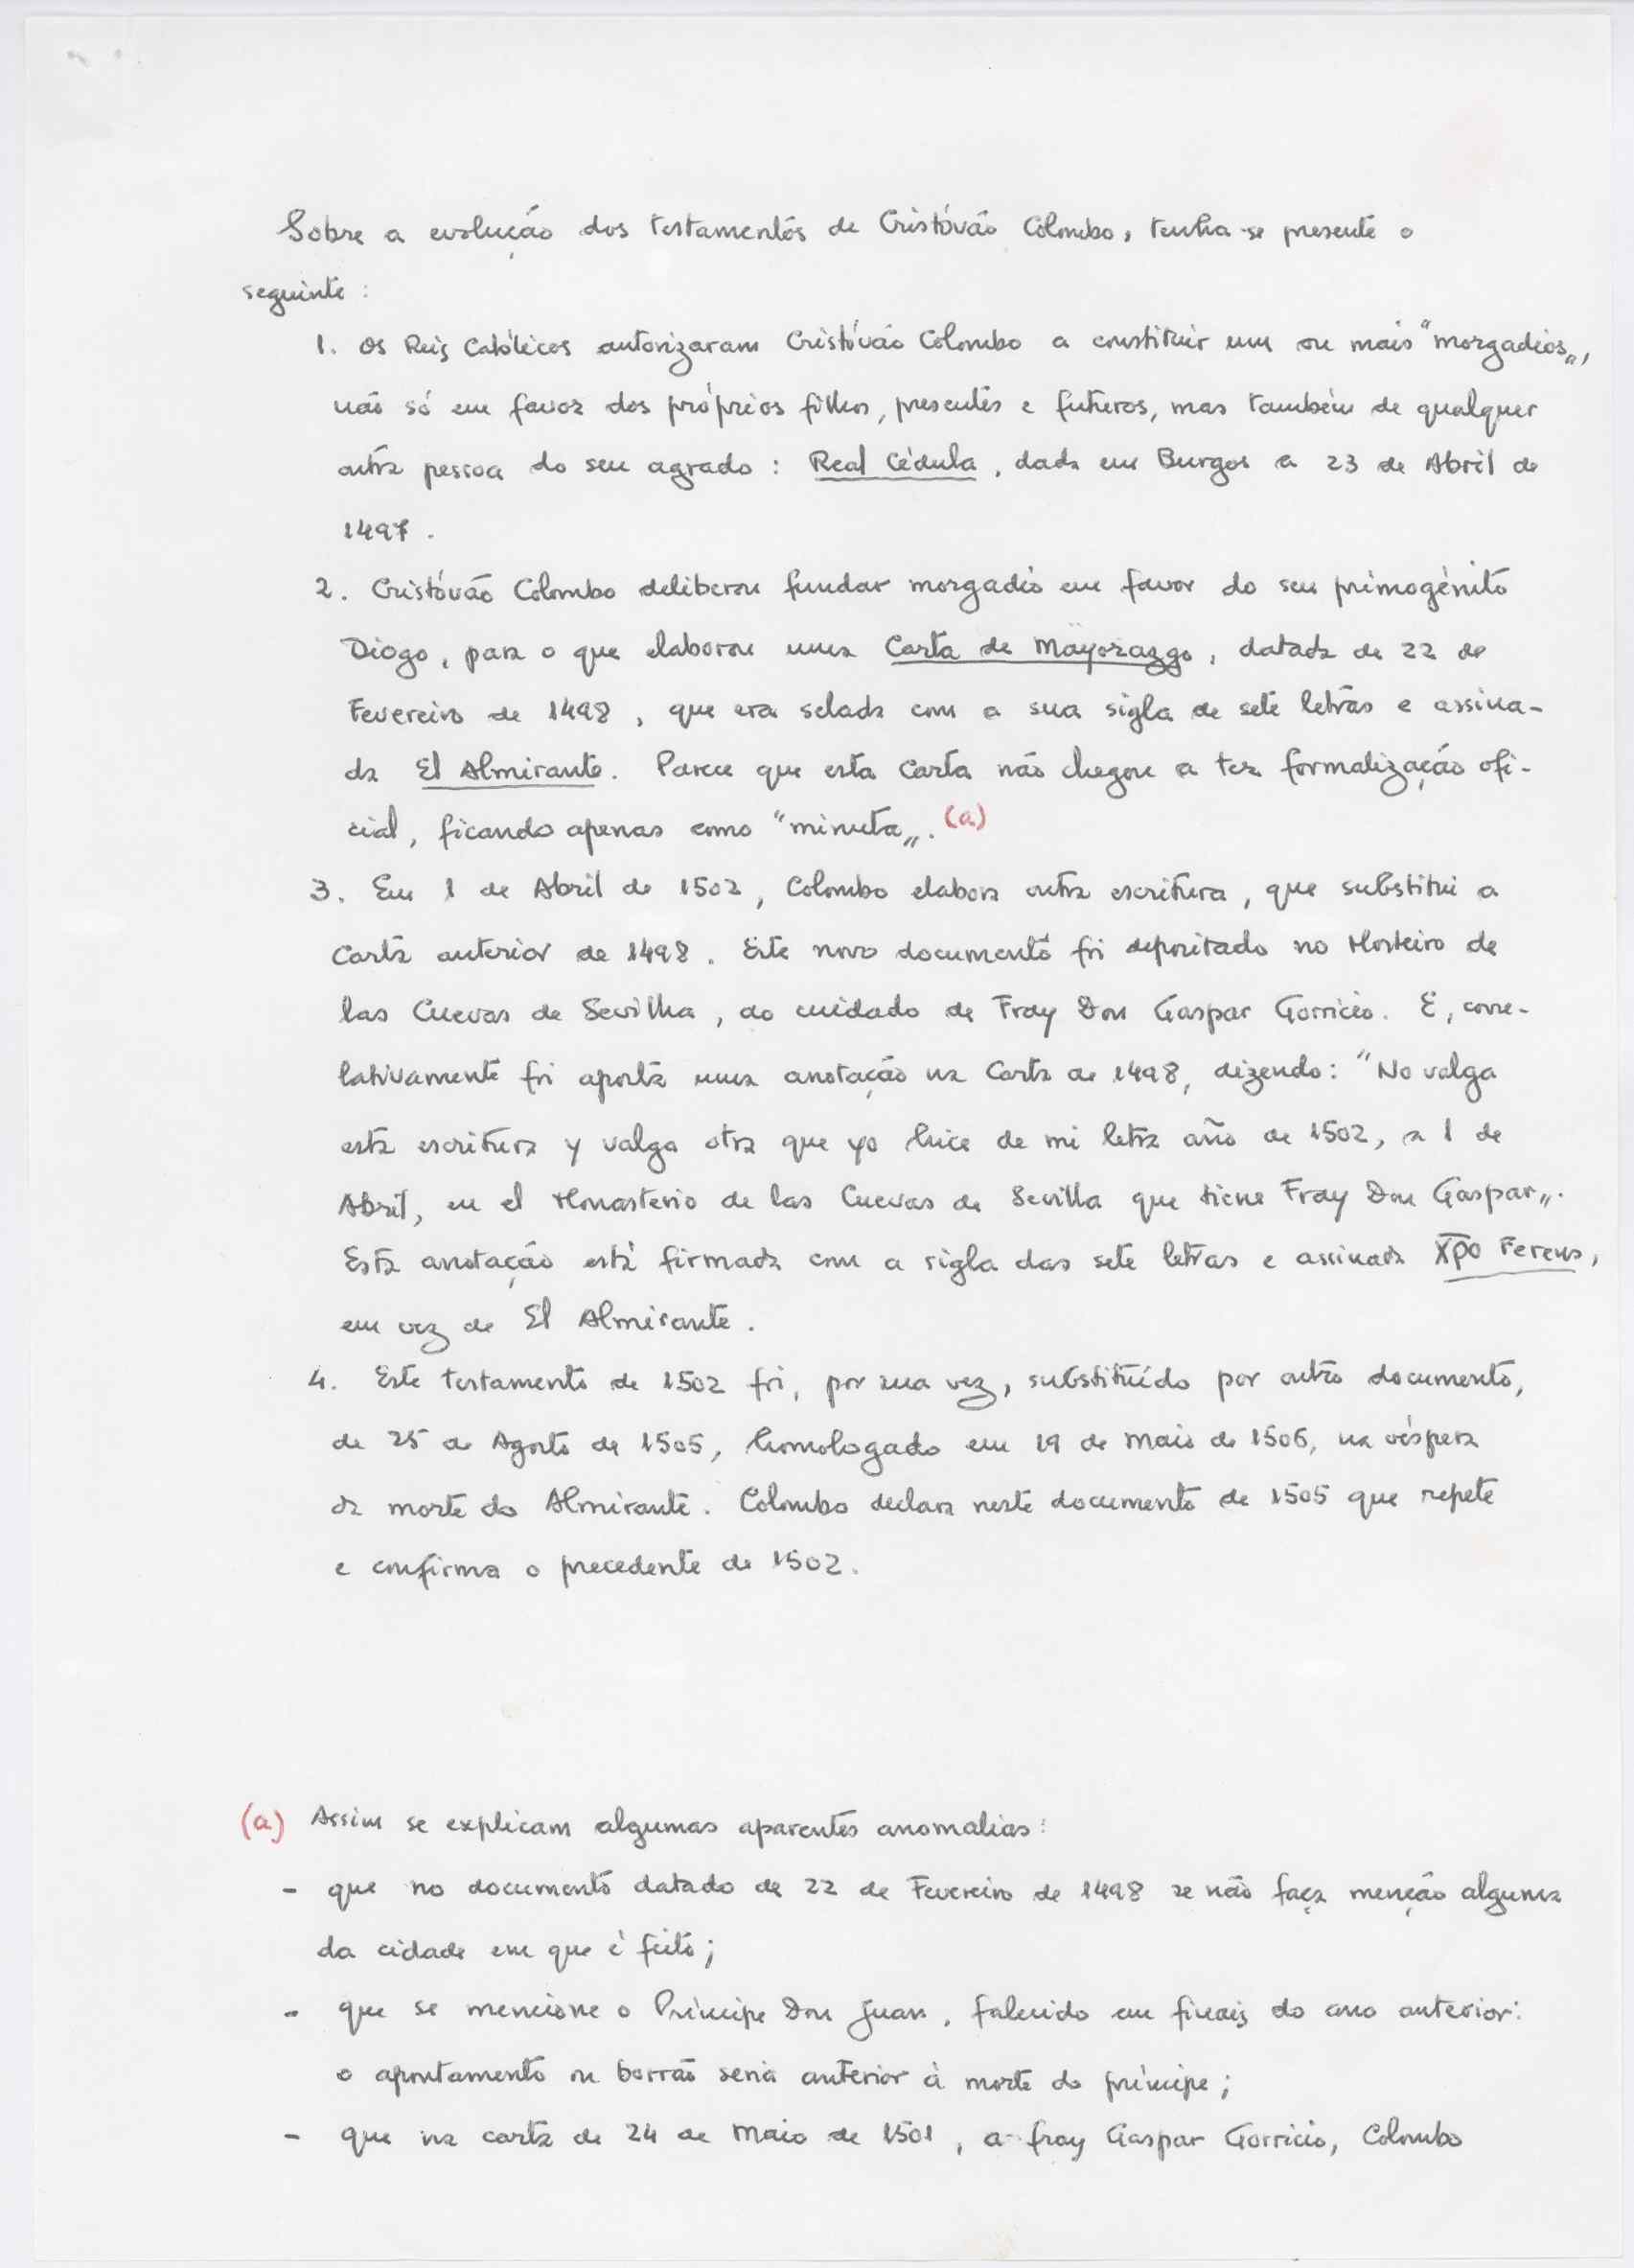 Sobre a evolução dos testamentos de Cristóvão Colombo, tenha-se presente o
seguinte:
1. Os Reis Católicos autorizaram Cristóvão Colombo a constituir um ou mais "morgadios„,
não só em favor dos próprios filhos, presentes e futuros, mas também de qualquer
outra pessoa do seu agrado: Real Cédula, dada em Burgos a 23 de Abril de
1497.
2. Cristóvão Colombo deliberou fundar morgadio em favor do seu primogénito
Diogo, para o que elaborou uma Carta de Mayorazgo, datada de 22 de
Fevereiro de 1498, que era selada com a sua sigla de sete letras e assina-
da El Almirante. Parece que esta Carta não chegou a ter formalização ofi-
cial, ficando apenas como "minuta„. (a)
3. Em 1 de Abril de 1502, Colombo elabora outra escritura, que substitui a
Carta anterior de 1498. Este novo documento foi depositado no Mosteiro de
las Cuevas de Sevilha, ao cuidado de Fray Don Gaspar Gorricio. E, corre-
lativamente foi aposta uma anotação na Carta de 1498, dizendo: "No valga
esta escritura y valga otra que yo hice de mi letra año de 1502, a 1 de
Abril, en el Monasterio de las Cuevas de Sevilla que tiene Fray Don Gaspar„.
Esta anotação está firmada com a sigla das sete letras e assinada Xpo Ferens,
em vez de El Almirante.
4. Este testamento de 1502 foi, por sua vez, substituído por outro documento,
de 25 de Agosto de 1505, homologado em 19 de Maio de 1506, na véspera
da morte do Almirante. Colombo declara neste documento de 1505 que repete
e confirma o precedente de 1502.
(a) Assim se explicam algumas aparentes anomalias:
- que no documento datado de 22 de Fevereiro de 1498 se não faça menção alguma
da cidade em que é feito;
- que se mencione o Príncipe Don Juan, falecido em finais do ano anterior:
o apontamento ou borrão seria anterior à morte do príncipe;
- que na carta de 24 de Maio de 1501, a fray Gaspar Gorricio, Colombo